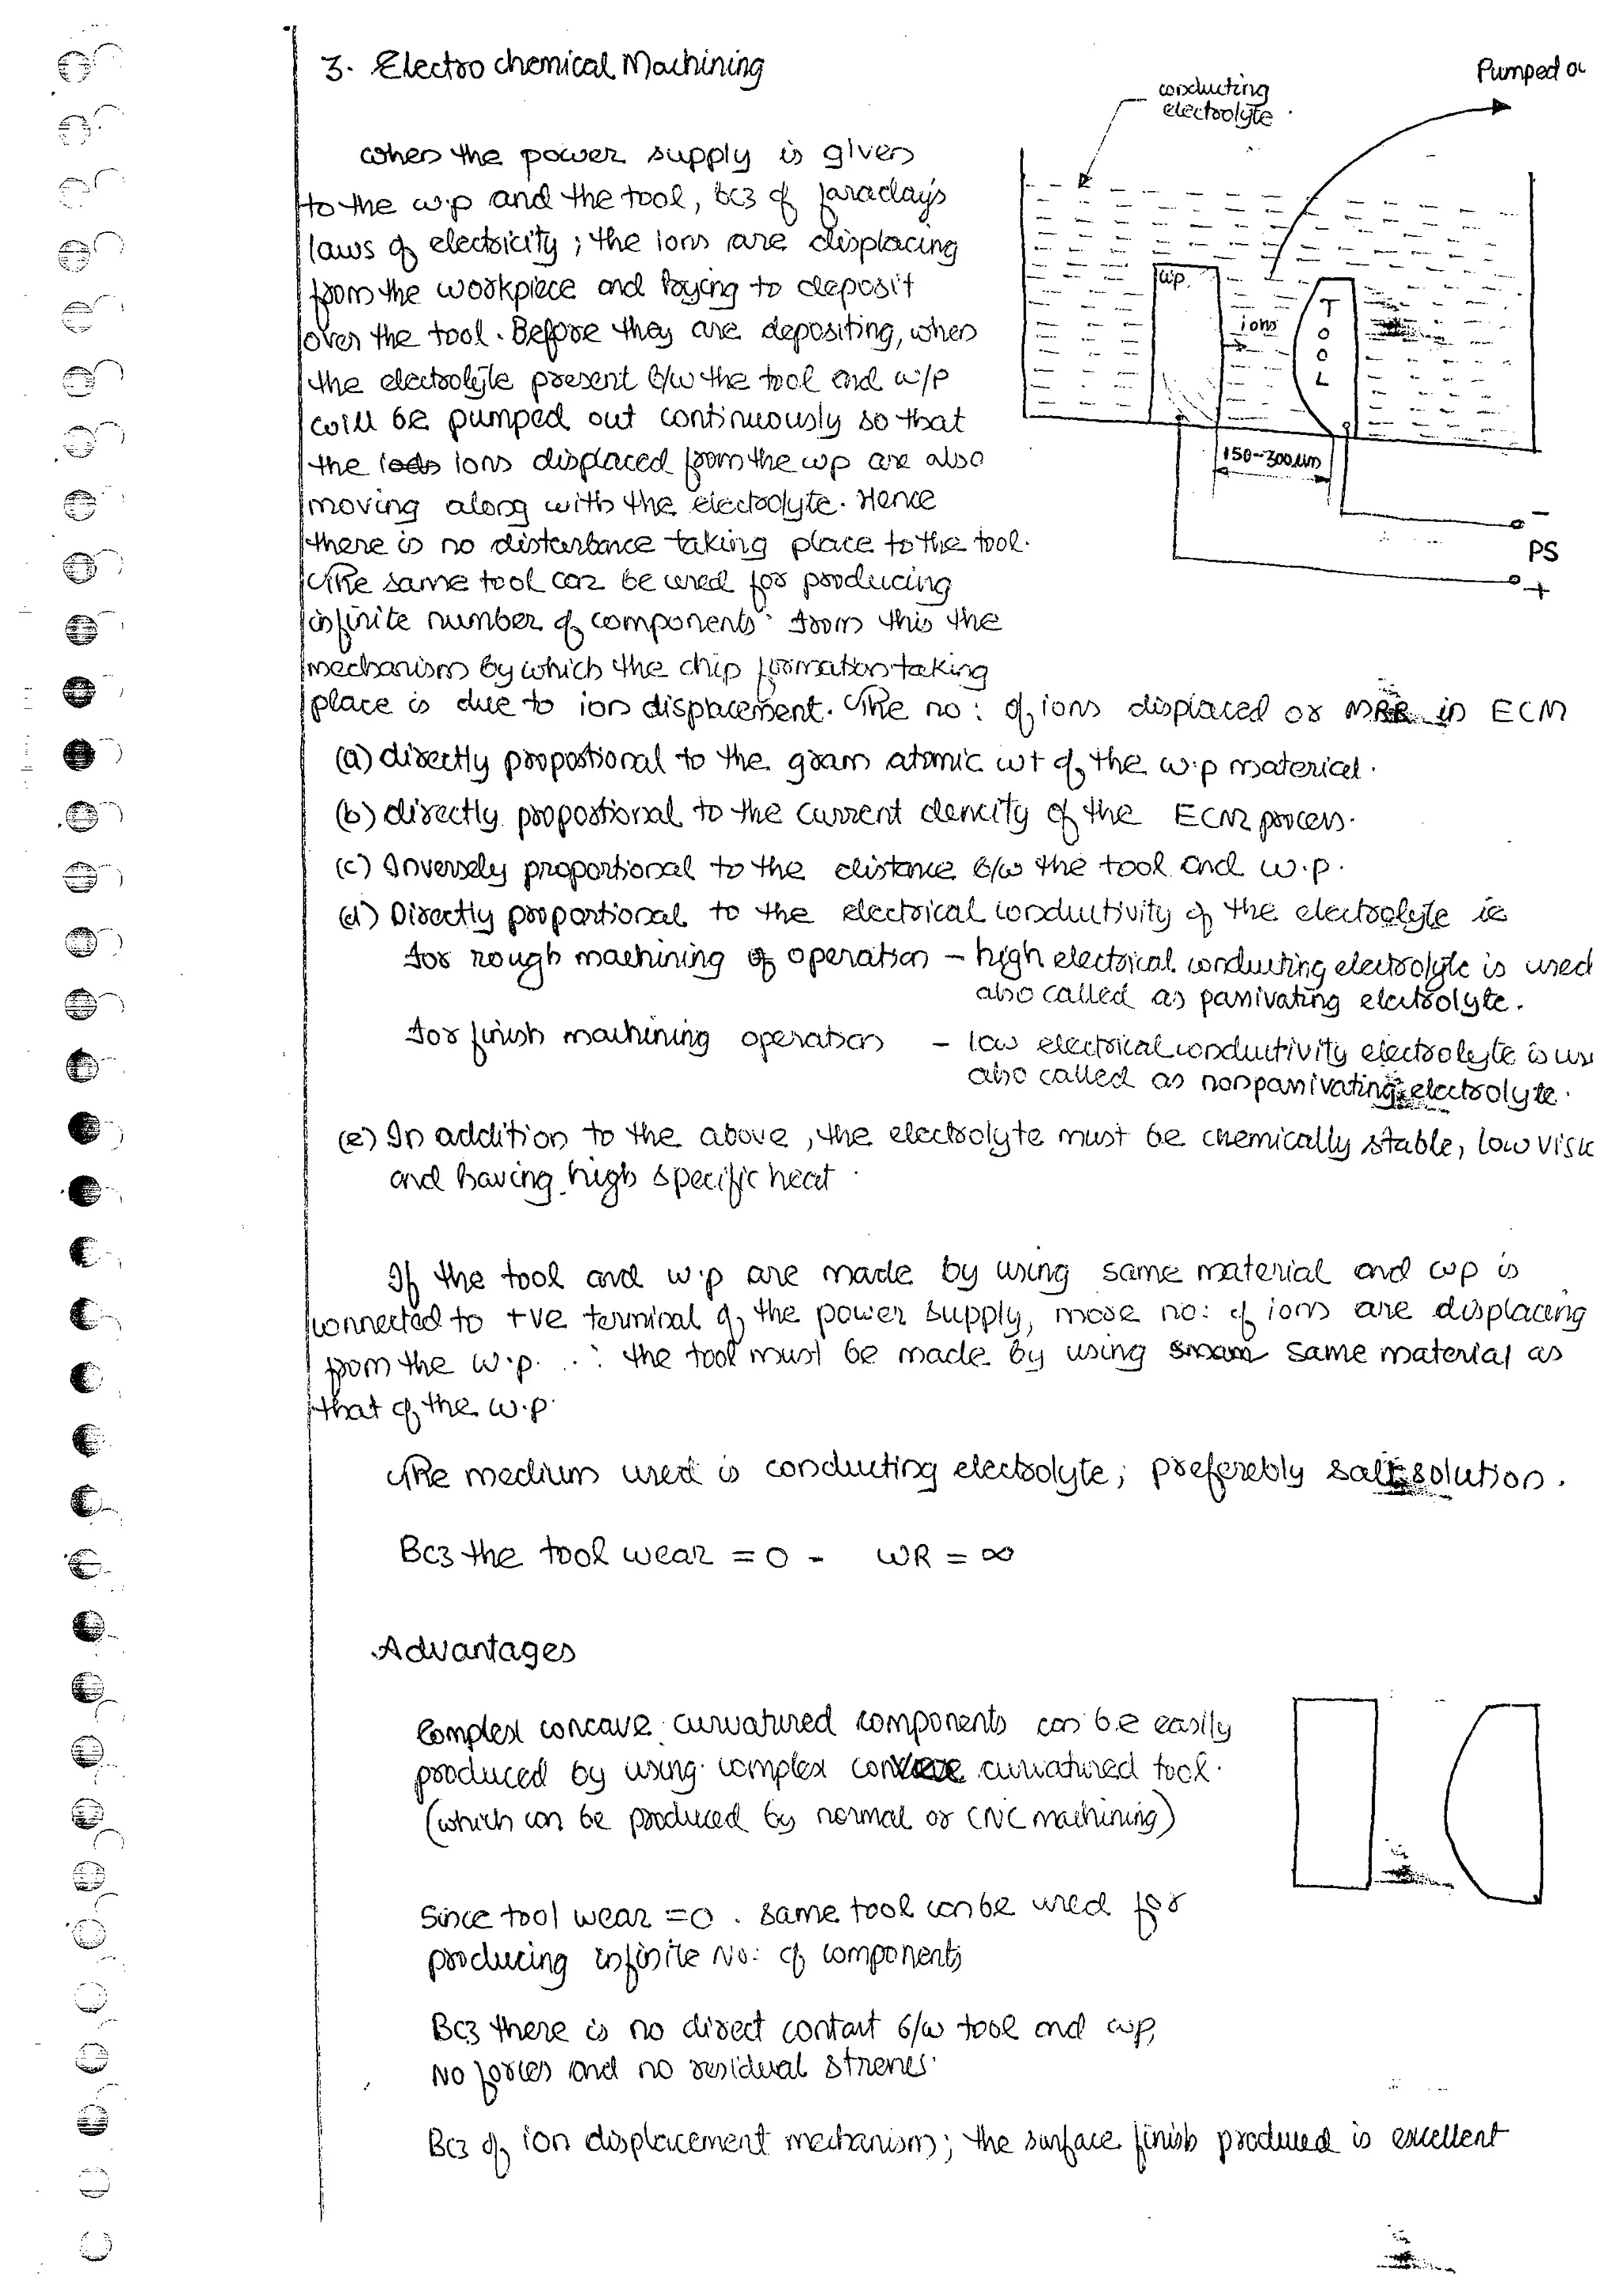 3. Electro chemical Machining
Pumped ou
conducting
electrolyte.
when the power supply is given
to the w.p and the tool, bcz of faraday's
laws of electricity; the ions are displacing
from the workpiece and trying to deposit
over the tool. Before they are depositing, when
the electrolyte present b/w the tool and w/p
will be pumped out continuously so that
the ions displaced from the wp are also
moving along with the electrolyte. Hence
there is no disturbance taking place to the tool.
The same tool can be used for producing
infinite number of components. From this the
mechanism by which the chip formation taking
place is due to ion displacement. The no: of ions displaced or MRR in ECM
wp.
ions
TOOL
150-300µm
-
PS
+
(a) directly propostional to the gram atomic wt of the w.p material.
(b) directly propostional to the current dencity of the ECM process.
(c) Inversely proportional to the distance b/w the tool and w.p.
(d) Directly proportional to the electrical conductivity of the electrolyte ie
for rough machining of operation - high electrical conducting electrolyte is used
also called as passivating electrolyte.
For finish machining operation - low electrical conductivity electrolyte is us
also called as nonpassivating electrolyte.
(e) In addition to the above, the electrolyte must be chemically stable, low visc
and having high specific heat
If the tool and w.p are made by using same material and wp is
connected to +ve terminal of the power supply, more no: of ions are displacing
from the w.p. ∴ the tool must be made by using same material as
that of the w.p.
The medium used is conducting electrolyte; preferebly salt solution.
Bcz the tool wear = 0 - WR = ∞
Advantages
Complex concave curvatured components can be easily
produced by using complex convex curvatured tool.
(which can be produced by normal or CNC machining)
Since tool wear = 0. same tool can be used for
producing infinite No: of components
Bcz there is no direct contact b/w tool and wp,
No forces and no residual stresses.
Bcz of ion displacement mechanism; the surface finish produced is excellent